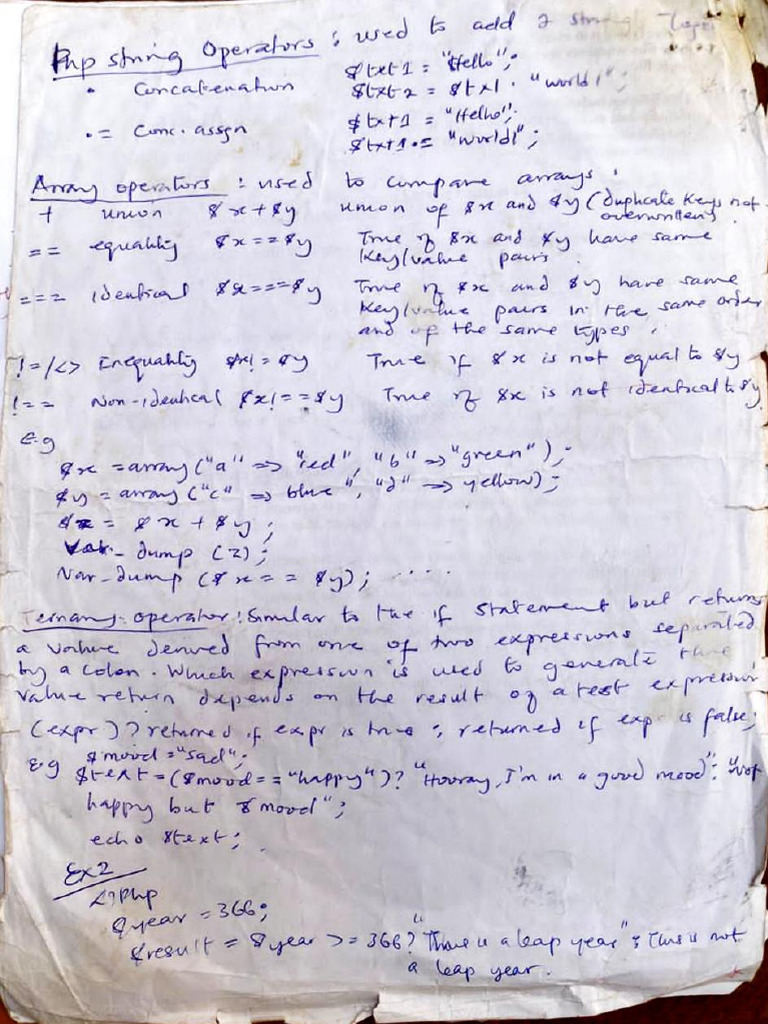 Php string Operators : used to add 2 string
. Concatenation $txt1 = "Hello";
$txt2 = $tx1 . "world!";
.= Conc. assgn $txt1 = "Hello";
$txt1 .= "world!";
Array operators : used to compare arrays :
+ union $x + $y union of $x and $y (duplicate keys not overwritten).
== equality $x == $y True if $x and $y have same
key/value pairs .
=== identical $x === $y True if $x and $y have same
key/value pairs in the same order
and of the same types .
!=/<> Inequality $x! = $y True if $x is not equal to $y
!== Non-identical $x! == $y True if $x is not identical to $y.
E.g
$x = array ("a" => "red", "b" => "green");
$y = array ("c" => blue", "d" => yellow);
$z = $x + $y ;
Var_dump (z);
Var_dump ($x == $y); ....
Ternary operator : Similar to the if statement but returns
a value derived from one of two expressions separated
by a colon. Which expression is used to generate the
value return depends on the result of a test expression
(expr) ? returned if expr is true : returned if exp is false;
E.g $mood = "sad";
$text = ($mood == "happy") ? "Hooray, I'm in a good mood" : "Not
happy but $mood";
echo $text;
Ex2
<?Php
$year = 366;
$result = $year >= 366? "This is a leap year" : this is not
a leap year.